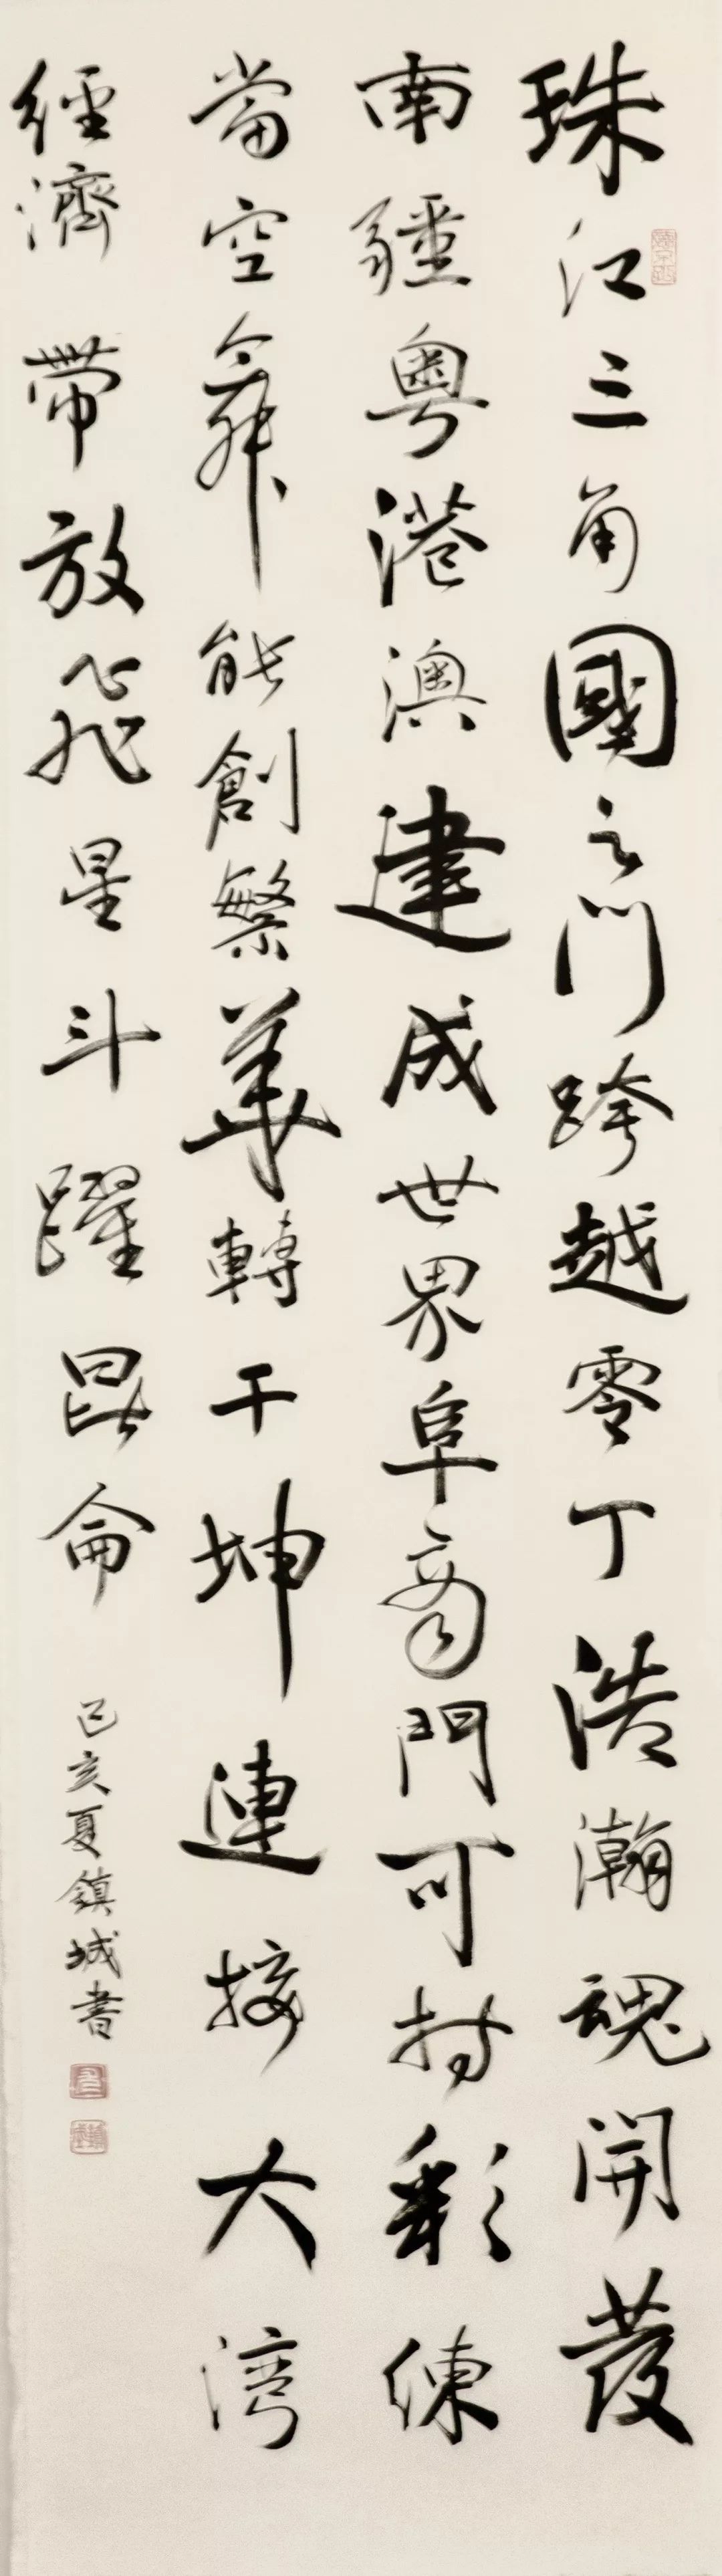 珠江三角國之門跨越零丁浩瀚魂開發
南疆粵港澳建成世界阜商門可持彩練
當空舞能創繁華轉乾坤連接大灣
經濟帶放飛星斗躍昆侖
己亥夏鎮城書